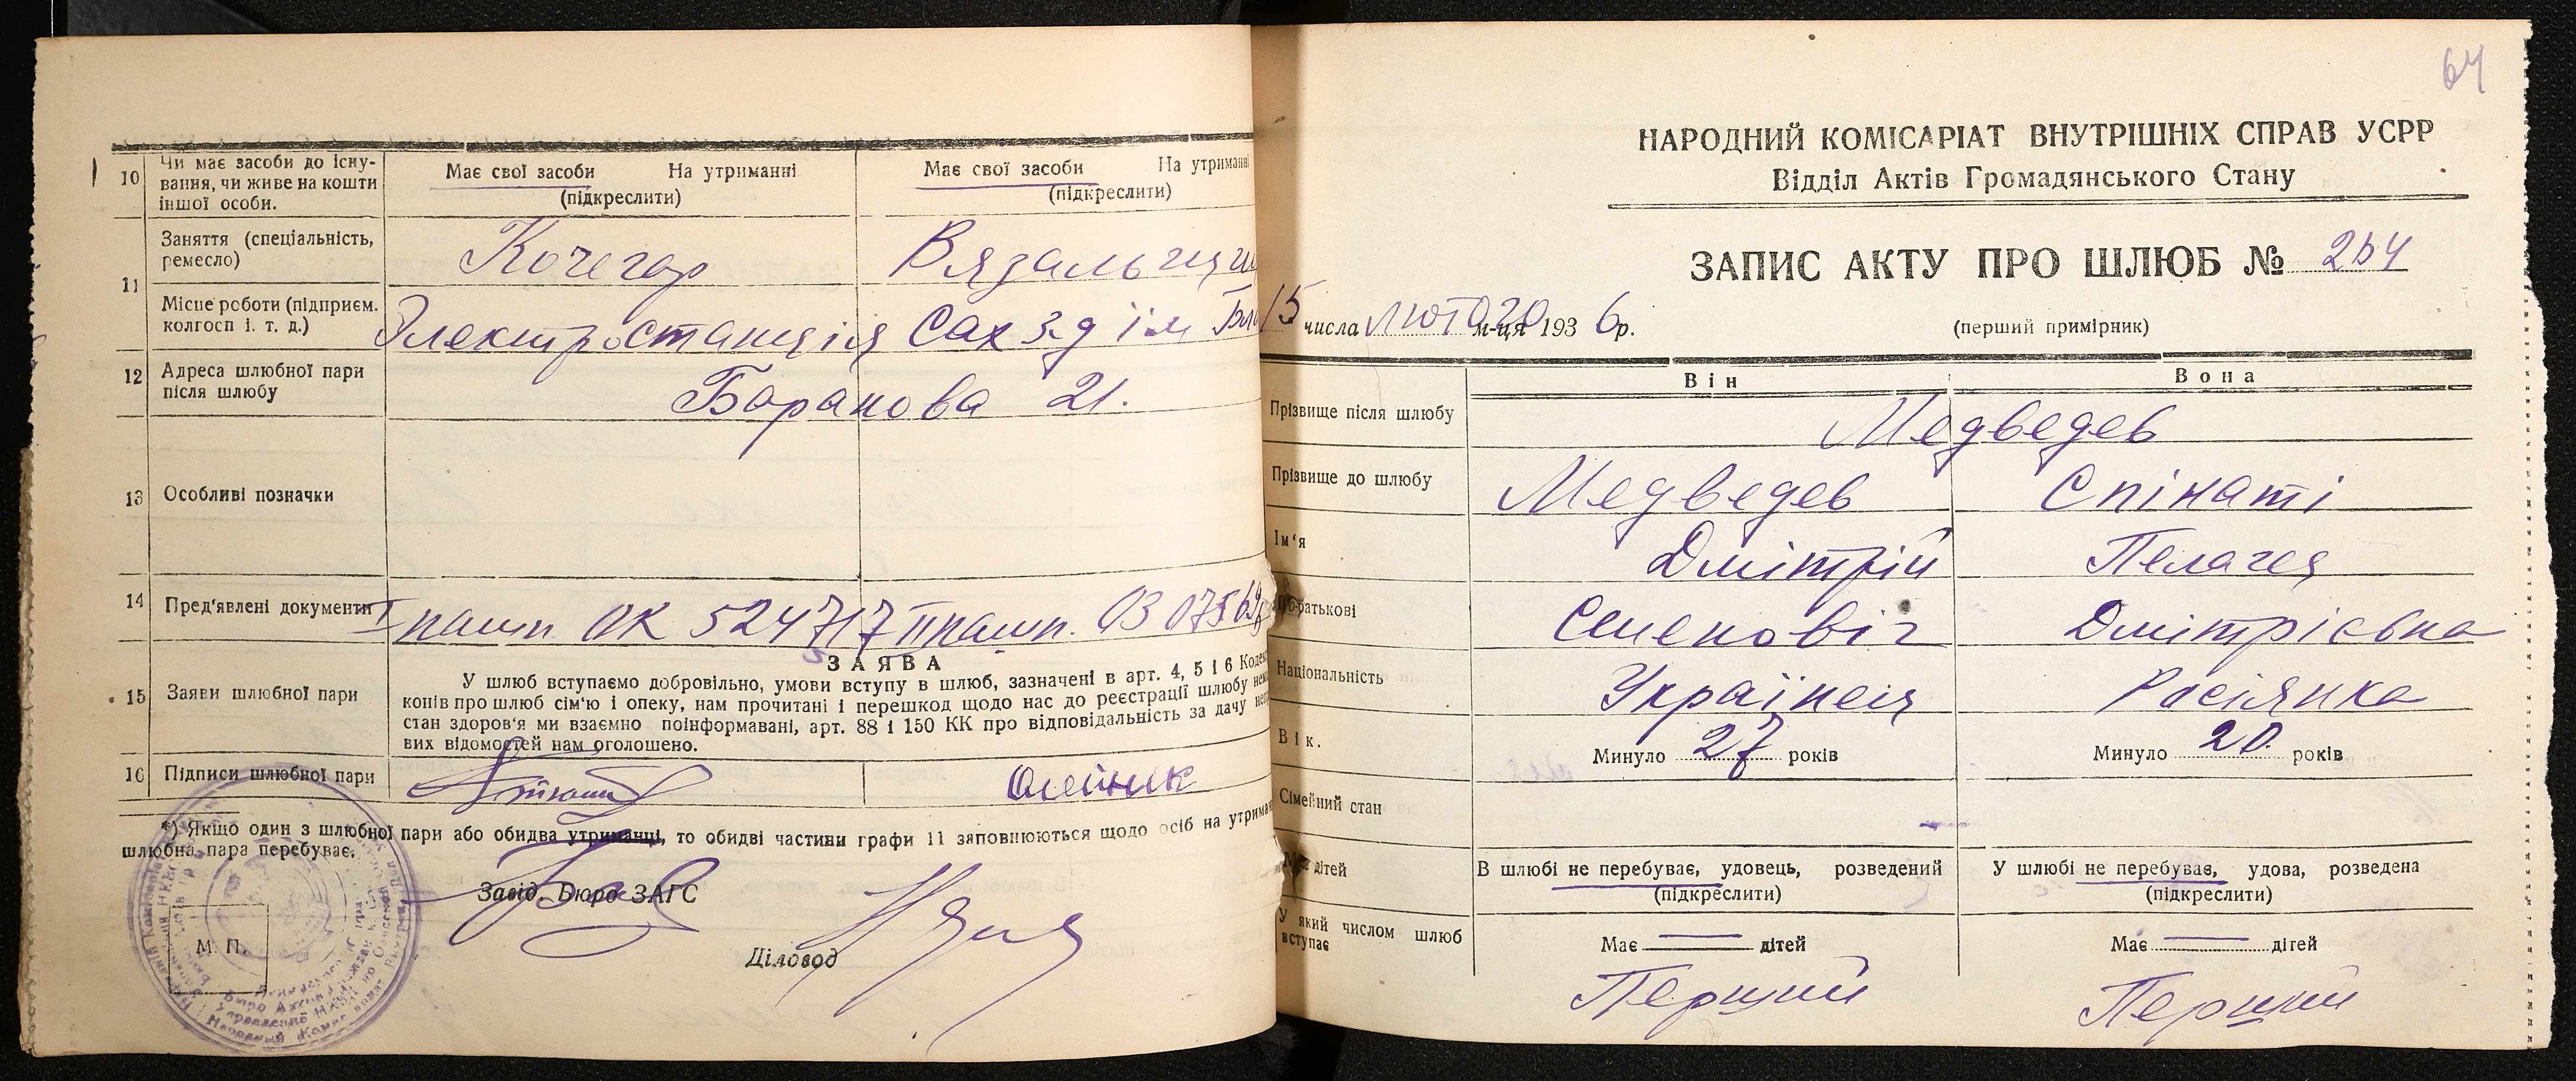 10 Чи має засоби до існування, чи живе на кошти іншої особи.
Має свої засоби На утриманні
(підкреслити)
Має свої засоби На утриманні
(підкреслити)
11 Заняття (спеціальність, ремесло)
Кочегар
Вязальщиц
Місце роботи (підприєм. колгосп і. т. д.)
Электростанція Сах з-д ім
12 Адреса шлюбної пари після шлюбу
Баранова 21.
13 Особливі позначки
14 Пред'явлені документи
I пашп. ОК 524717 II пашп. ОЗ
15 Заяви шлюбної пари
ЗАЯВА
У шлюб вступаємо добровільно, умови вступу в шлюб, зазначені в арт. 4, 5 і 6 Кодек
конів про шлюб сім'ю і опеку, нам прочитані і перешкод щодо нас до реєстрації шлюбу нема
стан здоров'я ми взаємно поінформавані, арт. 88 і 150 КК про відповідальність за дачу
вих відомостей нам оголошено.
16 Підписи шлюбної пари
Олейник
*) Якщо один з шлюбної пари або обидва утриманці, то обидві частини графи 11 заповнюються щодо осіб на утриман
шлюбна пара перебуває.
Завід. Бюро ЗАГС
М П.
Діловод
64
НАРОДНИЙ КОМІСАРІАТ ВНУТРІШНІХ СПРАВ УСРР
Відділ Актів Громадянського Стану
ЗАПИС АКТУ ПРО ШЛЮБ №
15 числа лютого м-ця 1936 р.
(перший примірник)
Він
Вона
Прізвище після шлюбу
Медведев
Прізвище до шлюбу
Медведев
Спінаті
Ім'я
Дмітрій
Пелагея
По-батькові
Семеновіч
Дмітріевна
Національність
Українец
Росіянка
Вік.
Минуло 27 років
Минуло 20. років
Сімейний стан
В шлюбі не перебуває, удовець, розведений
(підкреслити)
У шлюбі не перебуває, удова, розведена
(підкреслити)
Має дітей
Має — дітей
Має — дітей
У який числом шлюб вступає
Перший
Перший